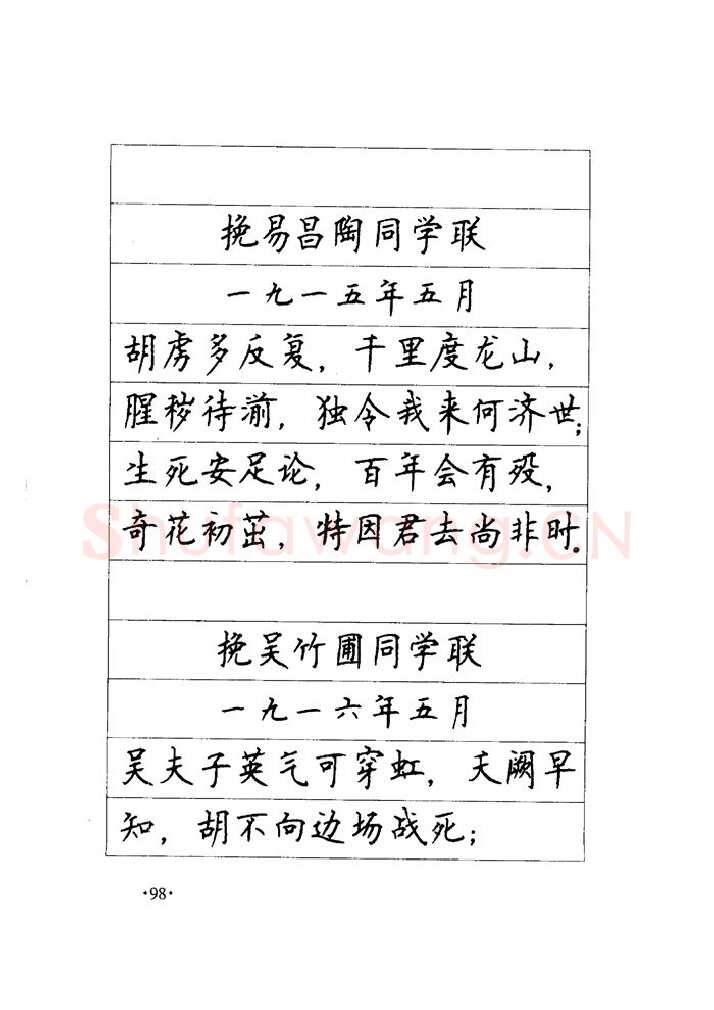 挽易昌陶同学联
一九一五年五月
胡虏多反复，千里度龙山，
腥秽待湔，独令我来何济世；
生死安足论，百年会有殁，
奇花初茁，特因君去尚非时。
挽吴竹圃同学联
一九一六年五月
吴夫子英气可穿虹，夭阙早
知，胡不向边场战死；
·98·
Shufawang.CN